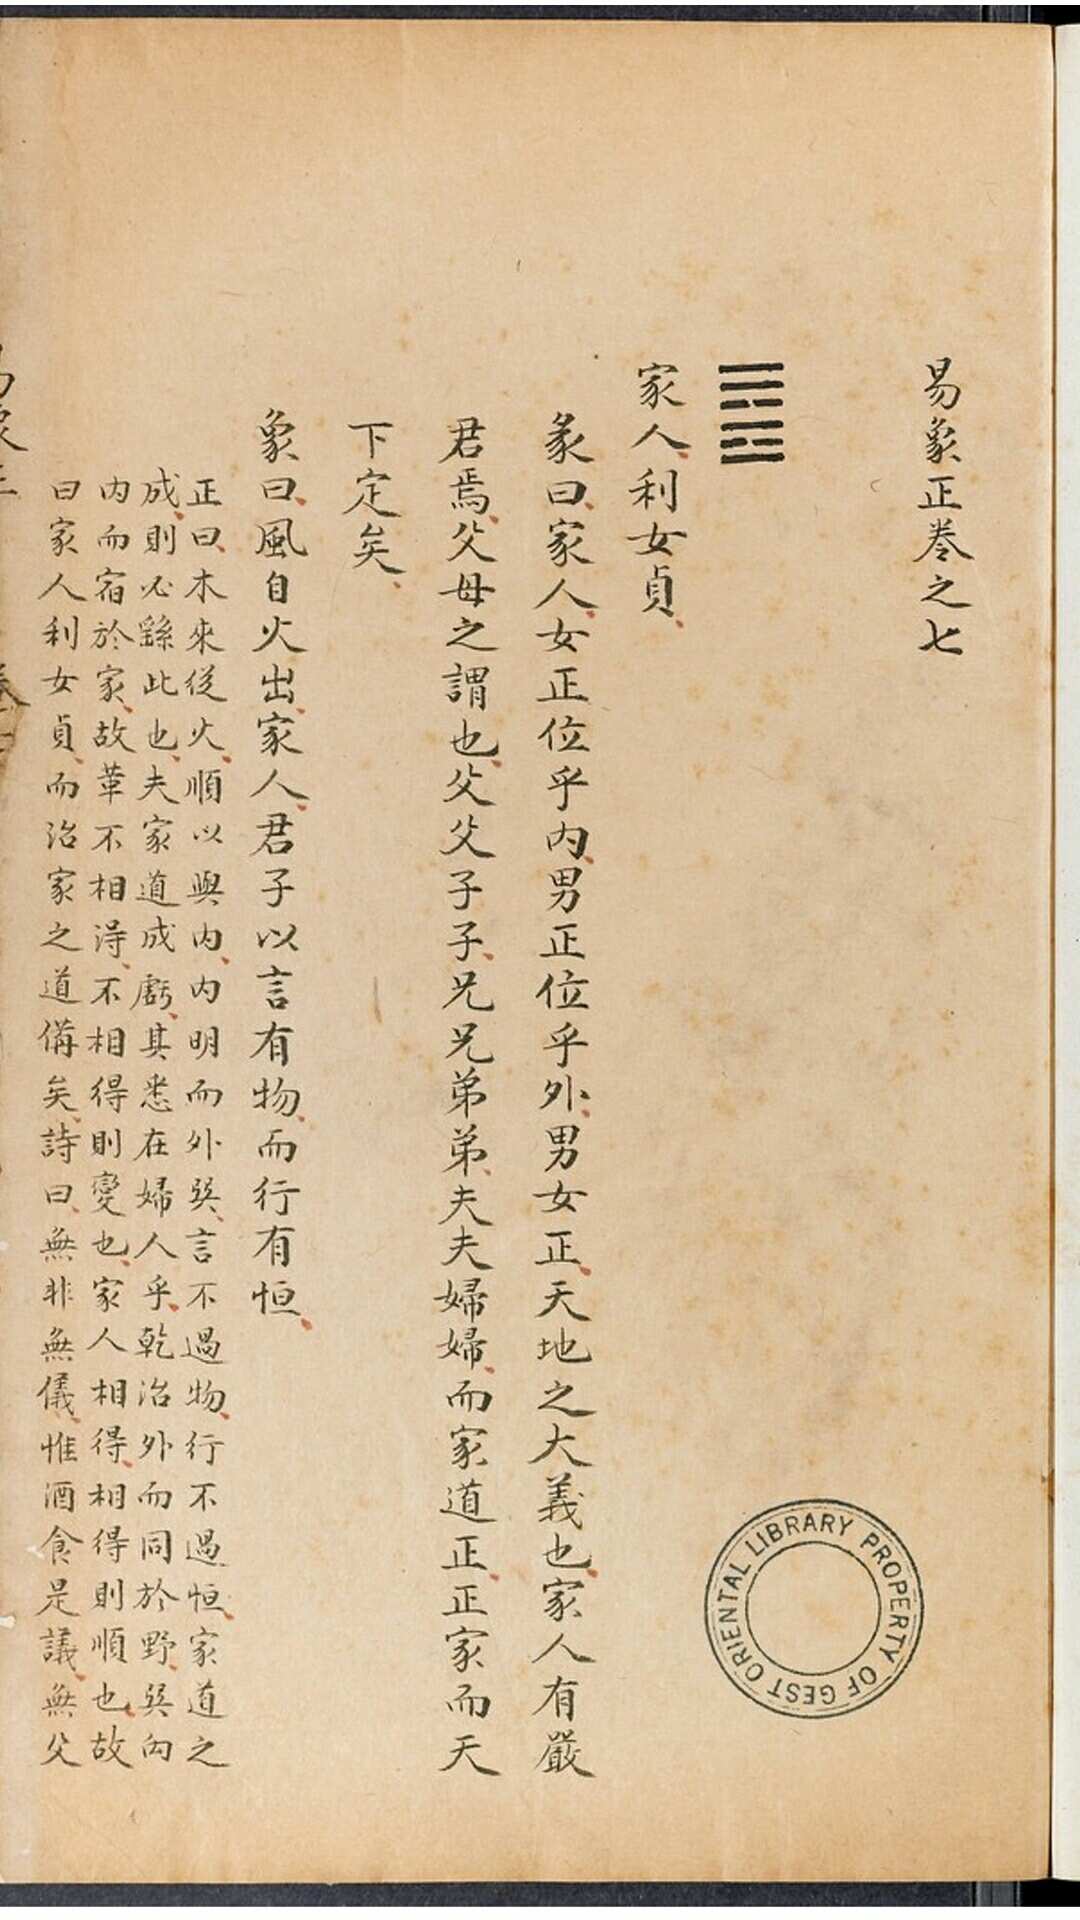 易象正卷之七
家人利女貞
彖曰家人女正位乎内男正位乎外男女正天地之大義也家人有嚴
君焉父母之謂也父父子子兄兄弟弟夫夫婦婦而家道正正家而天
下定矣
象曰風自火出家人君子以言有物而行有恒
正曰木來從火順以與内内明而外巽言不過物行不過恒家道之
成則必繇此也夫家道成虧其悉在婦人乎乾治外而同於野巽向
内而宿於家故革不相得不相得則變也家人相得相得則順也故
曰家人利女貞而治家之道備矣詩曰無非無儀惟酒食是議無父
PROPERTY OF GEST ORIENTAL LIBRARY